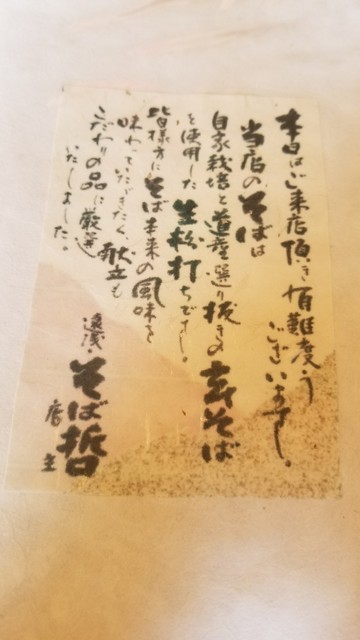 本日はご来店頂き有難度う
ございます。
当店のそばは
自家栽培と道産選り抜きの玄そば
を使用した生粉打ちです。
皆様方にそば本来の風味を
味わっていただきたく、献立も
こだわりの品に厳選
いたしました。
遠浅・そば哲
店主